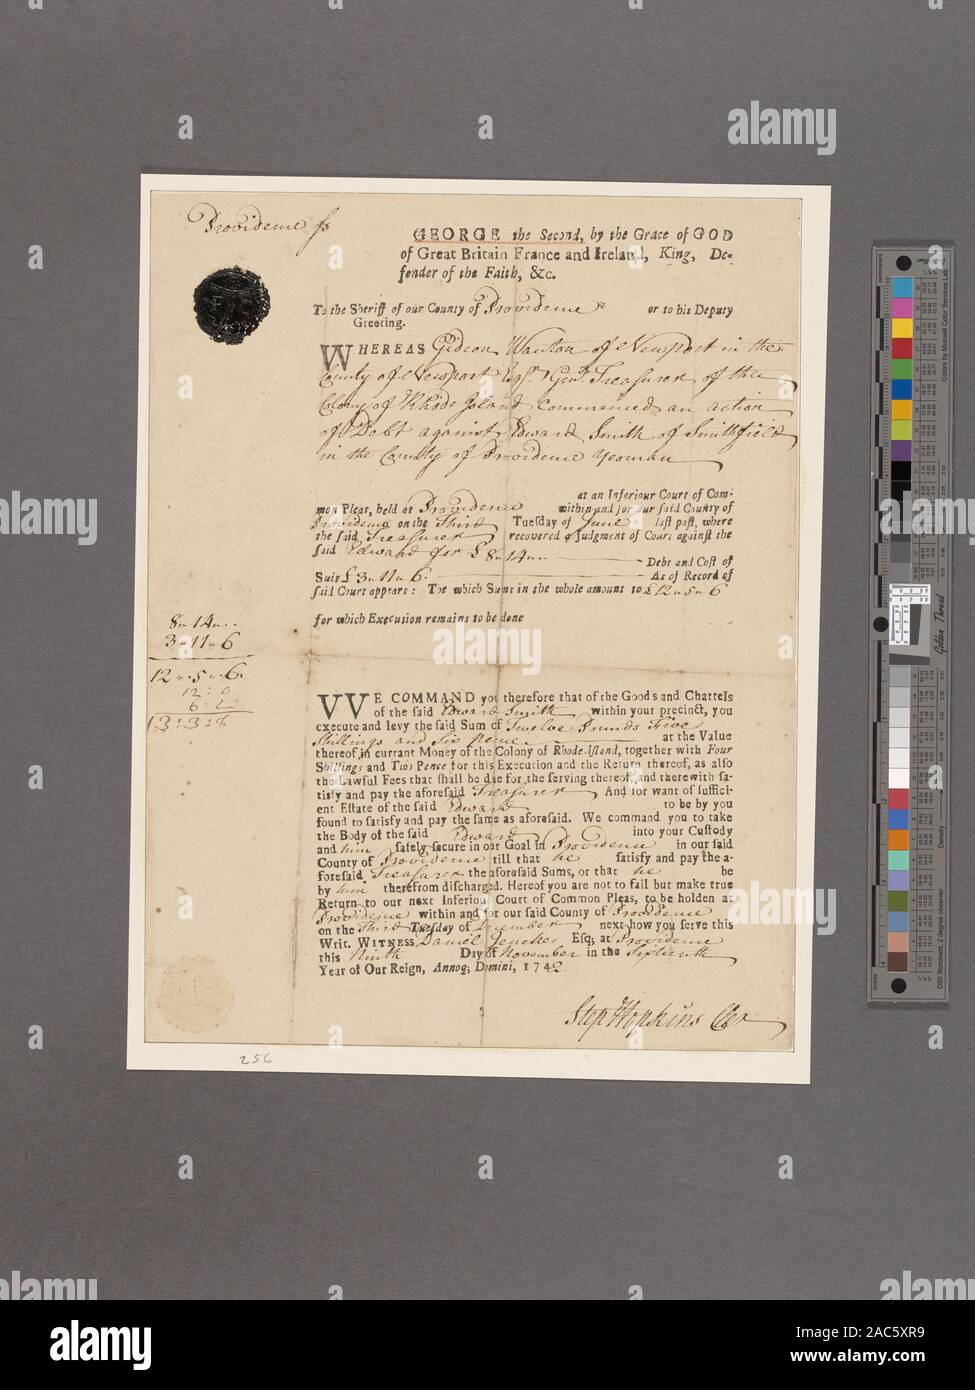 Providence ss
GEORGE the Second, by the Grace of GOD
of Great Britain France and Ireland, King, De-
fender of the Faith, &c.
To the Sheriff of our County of Providence or to his Deputy
Greeting.
WHEREAS Gideon Wanton of Newport in the
County of Newport Esqr. & Genl. Treasurer of the
Colony of Rhode Island Commenced an action
of Debt against Edward Smith of Smithfield
in the County of Providence Yeoman
at an Inferiour Court of Com-
mon Pleas, held at Providence within and for our said County of
Providence on the Third Tuesday of June last past, where
the said Treasurer recovered Judgment of Court against the
said Edward for £ 8 " 14 " .. Debt and Cost of
Suit £ 3 " 11 " 6. As of Record of
said Court appears: The which Sums in the whole amount to £12 " 5 " 6
for which Execution remains to be done
8 " 14 " ..
3 " 11 " 6
12 " 5 " 6
12 : 0
6 : 2
13 : 3 : 8
WE COMMAND you therefore that of the Goods and Chattels
of the said Edward Smith within your precinct, you
execute and levy the said Sum of Twelve Pounds Five
Shillings and Six pence at the Value
thereof in currant Money of the Colony of Rhode-Island, together with Four
Shillings and Two Pence for this Execution and the Return thereof, as also
the Lawful Fees that shall be due for the serving thereof, and therewith sa-
tisfy and pay the aforesaid Treasurer And for want of suffici-
ent Estate of the said Edward to be by you
found to satisfy and pay the same as aforesaid. We command you to take
the Body of the said Edward into your Custody
and him safely secure in our Goal in Providence in our said
County of Providence till that he satisfy and pay the a-
foresaid Treasurer the aforesaid Sums, or that he be
by him therefrom discharged. Hereof you are not to fail but make true
Return to our next Inferiour Court of Common Pleas, to be holden at
Providence within and for our said County of Providence
on the Third Tuesday of December next how you serve this
Writ. WITNESS Daniel Jenckes Esq; at Providence
this Ninth Day of November in the Sixteenth
Year of Our Reign, Annoq; Domini, 1742
Step Hopkins Cler
256
Golden Thread
alamy
Image ID: 2AC5XR9
www.alamy.com